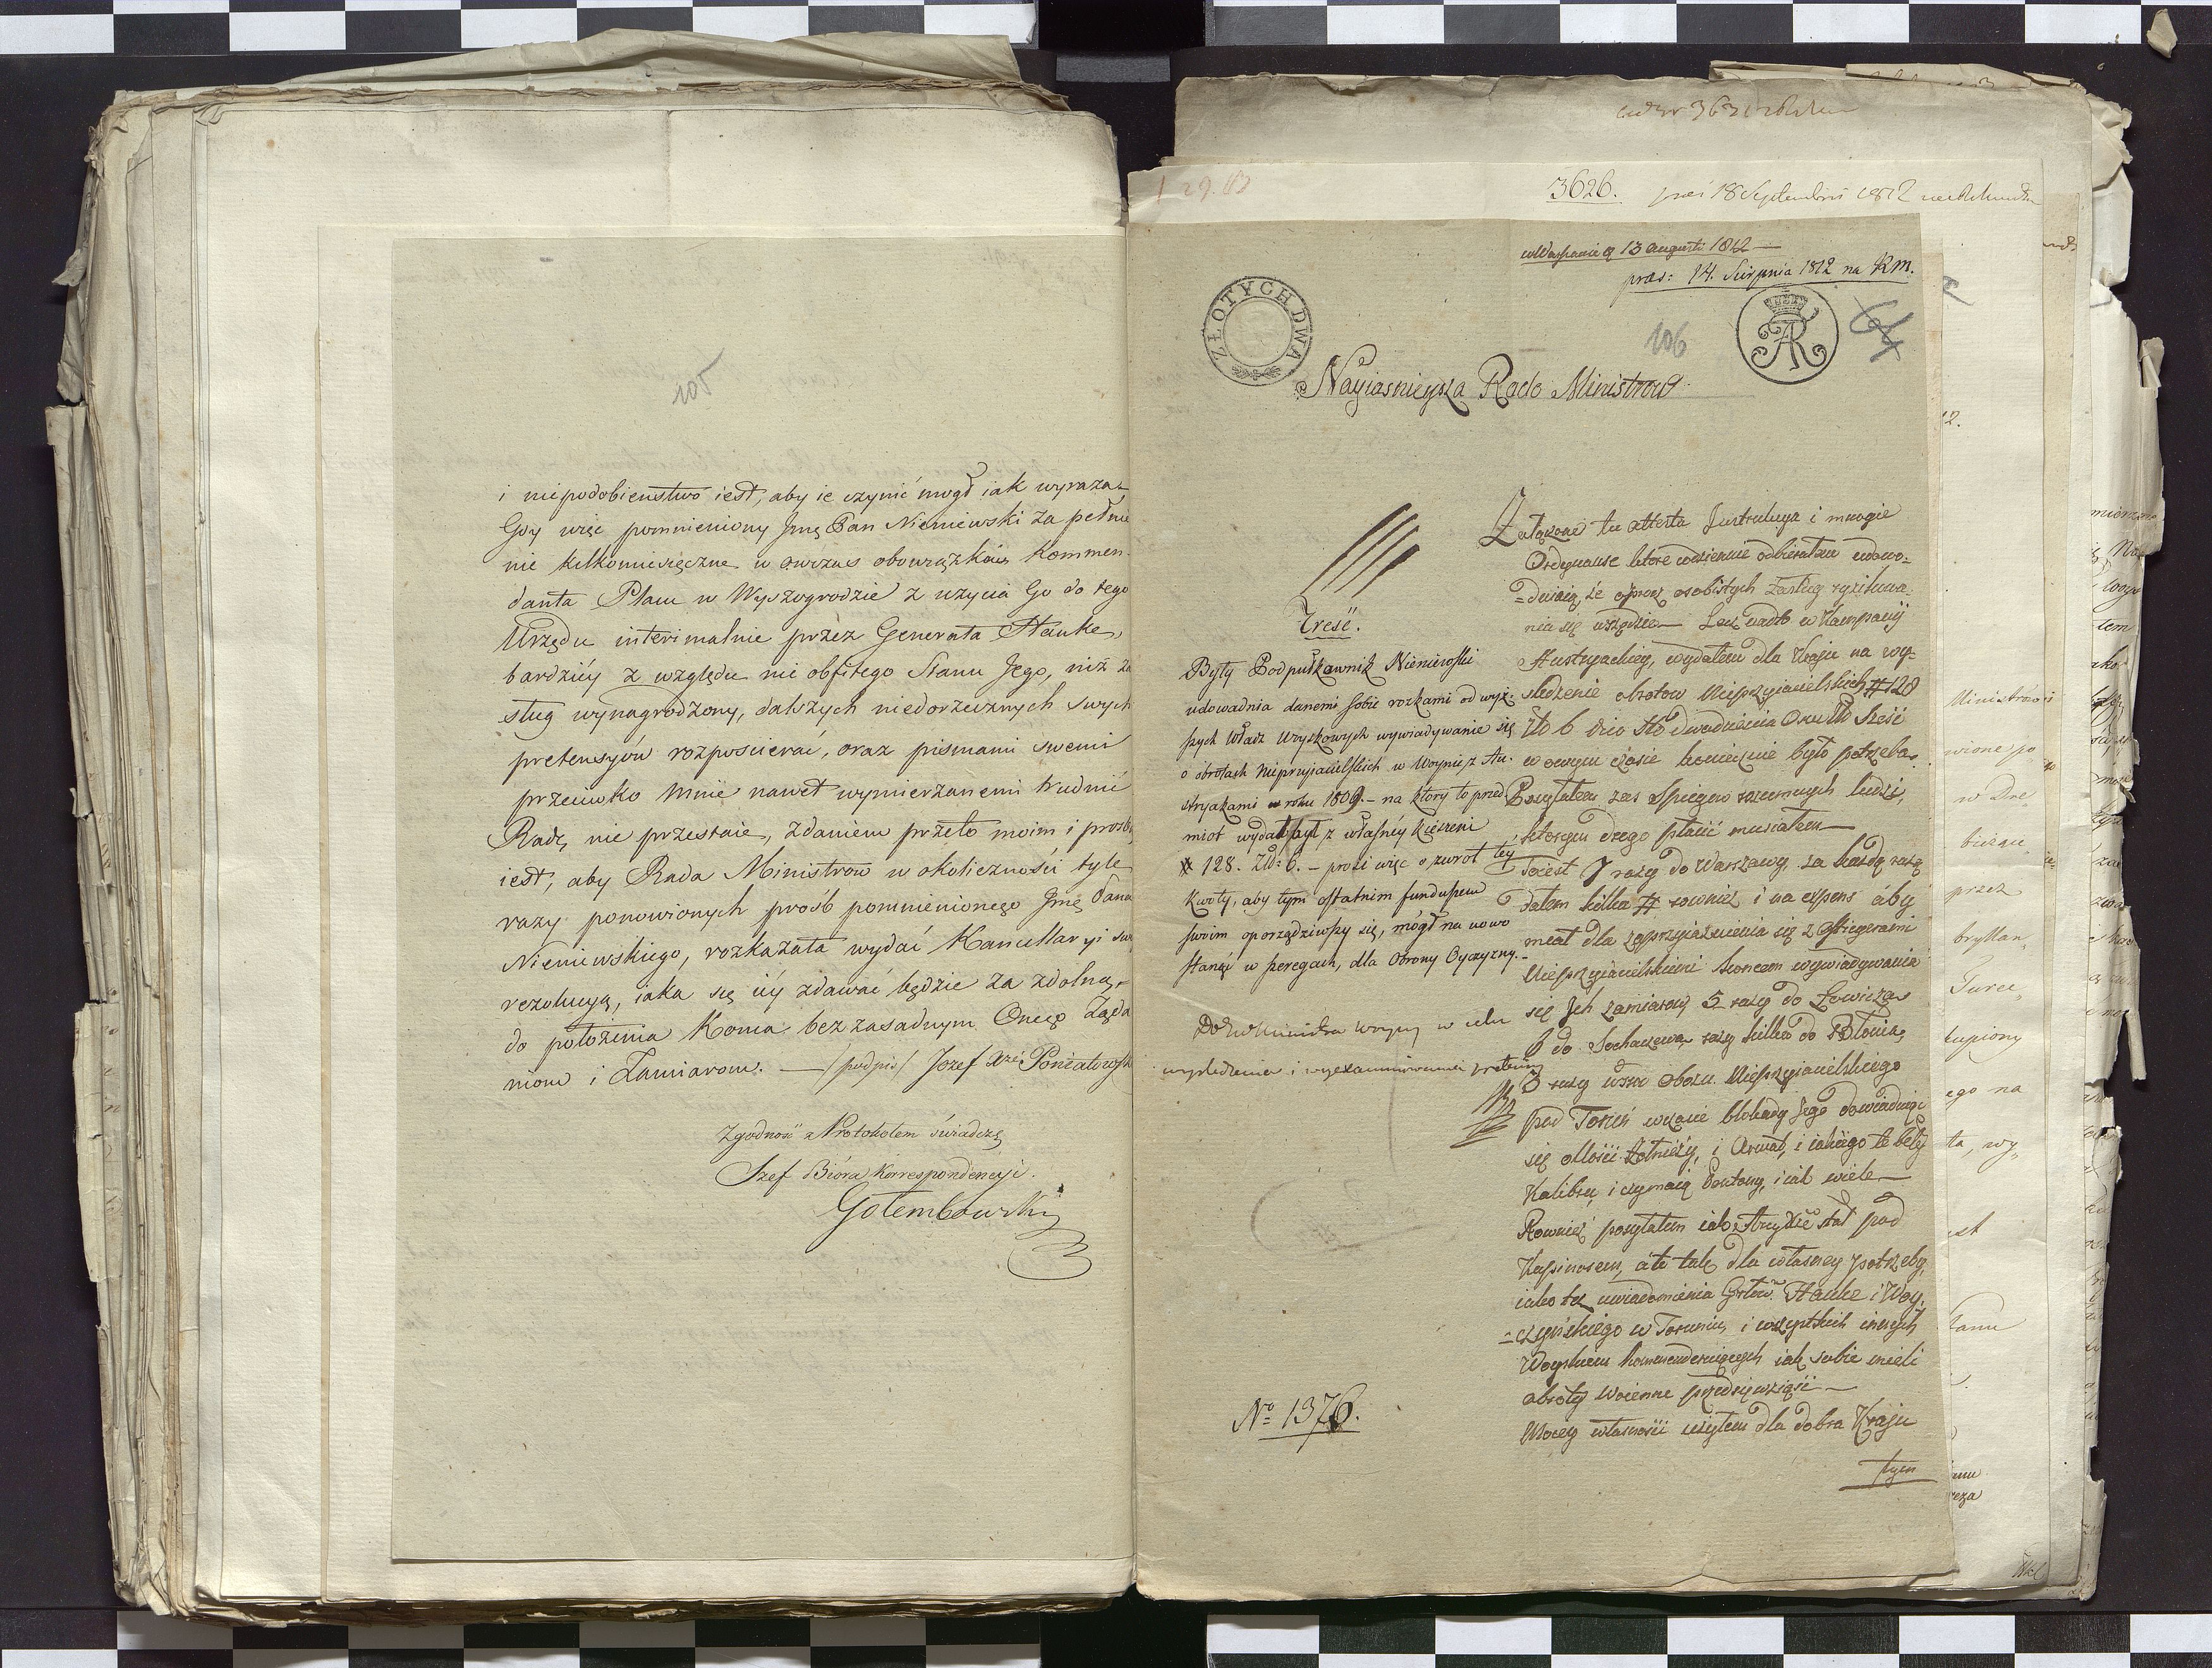 105
i niepodobieństwo iest, aby ie czynić mógł iak wyraża.
Gdy więc pomnieniony Jmę Pan Nieniewski za pełnie
nie kilkomiesięczne w owczas obowiązków Kommen
danta Placu w Wyszogrodzie z użycia Go do tego
Urzędu interimalnie przez Generała Hauke,
bardziéy z względu nie obfitego Stanu Jego, niż za
sług wynagrodzony, dalszych niedorzecznych swych
pretensyów rozpościerać, oraz pismami swemi
przeciwko mnie nawet wymierzanemi trudnić
Radę nie przestaie, zdaniem przeto moim i prośbą
iest, aby Rada Ministrow w okoliczności tyle
razy ponowionych prośb pomnienionego Jmę Pana
Nieniewskiego, rozkazała wydać Kancellaryi swe
rezolucyą, iaka się iéy zdawać będzie za zdolną,
do położenia Konca bezzasadnym Onego Żąda
niom i Zamiarom. — /podpis/ Jozef Xże Poniatowsk
Zgodność z Protokołem świadczę
Szef Bióra Korrespondencyi.
Gołembowski
3626.
prei 18 Septembris 1812
w Warszawie d 13 Augusti 1812 —
pras: 14. Sierpnia 1812 na KM.
ZŁOTYCH DWA
106
Nayiasnieysza Rado Ministrow
Treść.
Były Podpułkownik Nieniewski
udowadnia danemi sobie rozkami od wyż-
szych Władz Woyskowych wywiadywanie się
o obrotach Nieprzyiacielskich w Woynie z Au-
stryakami w roku 1809. – na ktory to przed
miot wydał był z własnéy kieszeni
# 128. Zł: 6. – prosi więc o zwrot téy
Kwoty, aby tym ostatnim funduszem
swoim oporządziwszy się, mógł na nowo
stanąć w szeregach, dla Obrony Oyczyzny.
Do Ministra Woyny w celu
wyśledzenia i wyexaminowania pretensyi
No 1376.
Załączone tu Attesta Jnstrukcya i mnogie
Ordynanse ktore codziennie odbierałem udowo-
=dniaią, że oprocz osobistych Zasług
nia się wszędzie — Lecz nadto w Kampanij
Austryackiey, wydałem dla Kraju na wy-
sledzenie obrotow Nieprzyiacielskich # 128
Zło 6 Sto dwadzieścia Osm Zło Sześć
w owym czasie koniecznie było potrzeba.
Posyłałem zas Szpiegow rozumnych ludzi,
ktorym drogo płacić musiałem —
Toiest 7 razy do Warszawy, za każdą razą
dałem kilka # rowniez i na expens aby
miał dla zaprzyiaźnienia się z Szpiegami
Nieprzyiacielskiemi koncem wywiadywania
się Jch zamiarow, 5 razy do Łowicza
6 do Sochaczewa razy kilka do Błonia,
3 razy wsrod obozu Nieprzyiacielskiego
pod Toruń wczasie blokady Jego dowiaduiąc
się o Ilości Żołnierzy, i Armat, i iakiego te były
Kalibru i czy maią Pontony, i iak wiele —
Rownież posyłałem iak Strzyże stał pod
Kapinosem, a to tak dla własney potrzeby,
iako też uwiadomienia Grłow Hauke i Woy-
=czyńskiego w Toruniu, i wszystkich innych
Woyskiem kommenderuiących iak sobie mieli
obroty Woienne przedsięwziąść —
Mocey własności użyłem dla dobra Kraju
tym